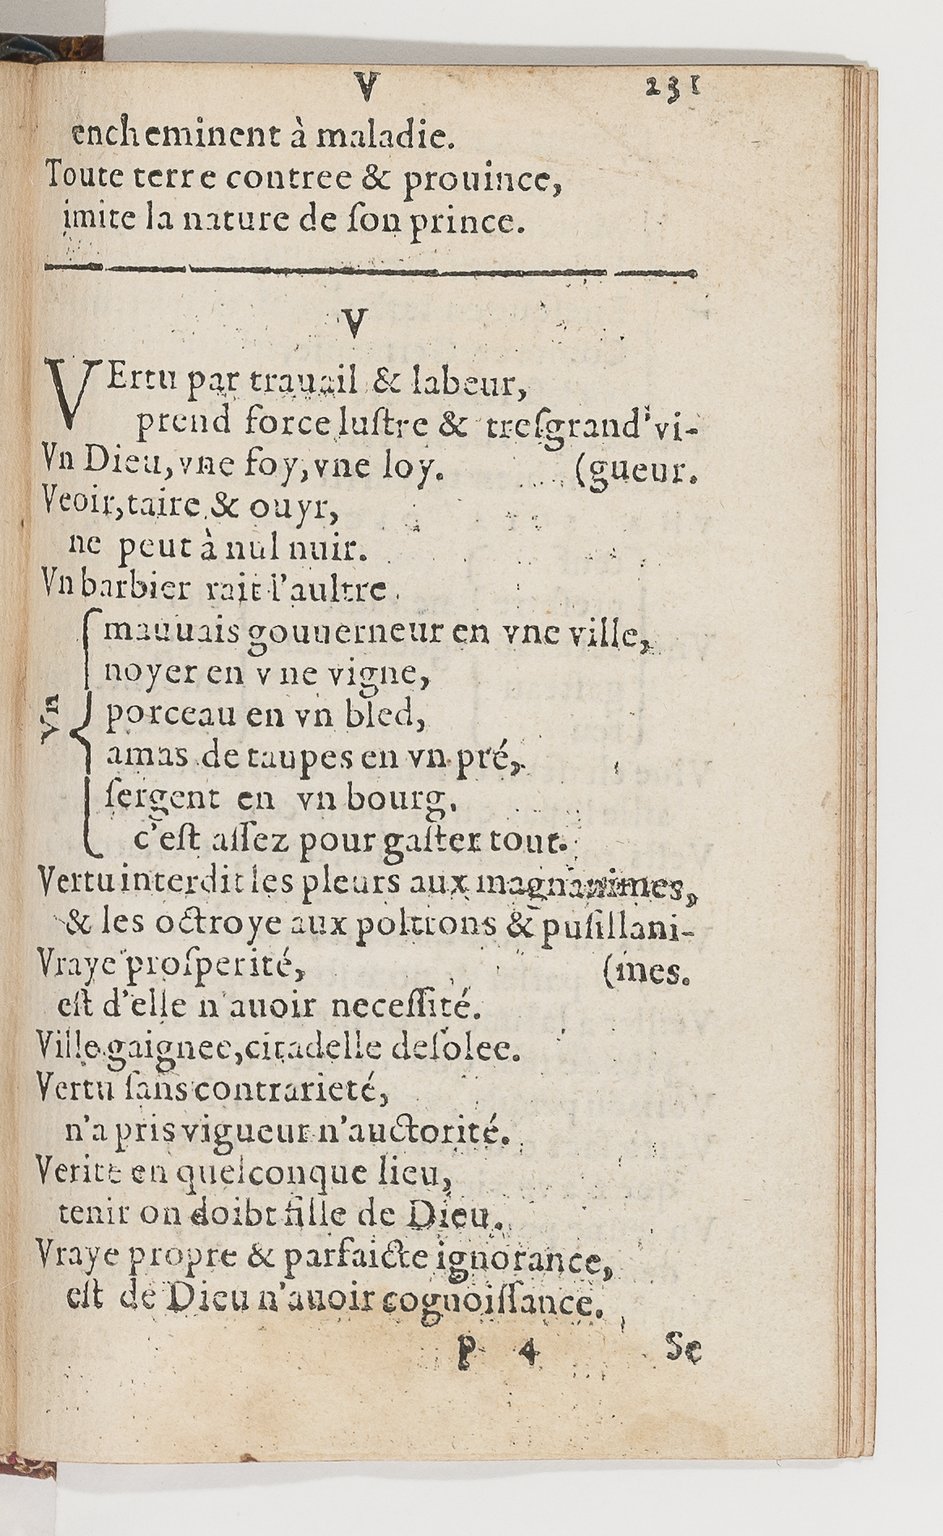 V 231
encheminent à maladie.
Toute terre contree & prouince,
imite la nature de ſon prince.
V
VErtu par trauail & labeur,
prend force luſtre & treſgrand' vi-
Vn Dieu, vne foy, vne loy. (gueur.
Veoir, taire & ouyr,
ne peut à nul nuir.
Vn barbier rait l'aultre.
Vn
mauuais gouuerneur en vne ville,
noyer en vne vigne,
porceau en vn bled,
amas de taupes en vn pré,
ſergent en vn bourg.
c'eſt aſſez pour gaſter tout.
Vertu interdit les pleurs aux magnanimes,
& les octroye aux poltrons & puſillani-
Vraye proſperité, (mes.
eſt d'elle n'auoir neceſſité.
Ville gaignee, citadelle deſolee.
Vertu ſans contrarieté,
n'a pris vigueur n'auctorité.
Verité en quelconque lieu,
tenir on doibt fille de Dieu.
Vraye propre & parfaicte ignorance,
eſt de Dieu n'auoir cognoiſſance.
p 4 Se